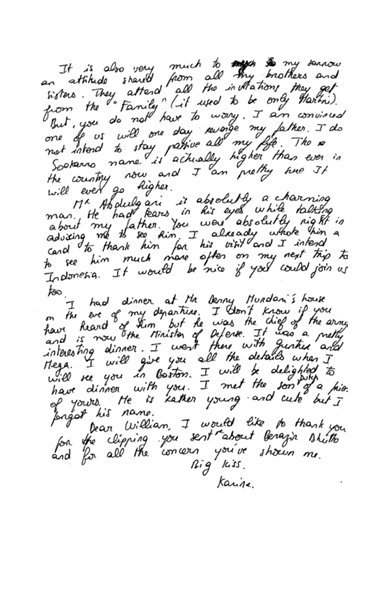 It is also very much to my sorrow
an attitude shared from all my brothers and
sisters. They attend all the invitations they get
from the "Family" (it used to be only Hartini).
But, you do not have to worry. I am convinced
one of us will one day revenge my father. I do
not intend to stay passive all my life. The
Soekarno name is actually higher than ever in
the country now and I am pretty sure It
will even go higher.
Mr Abdulgani is absolutly a charming
man. He had tears in his eyes while talking
about my father. You were absolutly right in
advising me to see him, I already wrote him a
card to thank him for his visit and I intend
to see him much more often on my next trip to
Indonesia. It would be nice if you could join us
too.
I had dinner at Mr Benny Murdani's house
on the eve of my departure. I don't know if you
have heard of him but he was the chief of the army
and is now the Minister of Defense. It was a pretty
interesting dinner. I went there with Guntur and
Mega. I will give you all the details when I
will see you in Boston. I will be delighted to
have dinner with you. I met the son of a
of yours. He is rather young and cute but I
forgot his name.
Dear William, I would like to thank you
for the clipping you sent about Benazir Bhutto
and for all the concern you've shown me.
Big Kiss.
Karina.